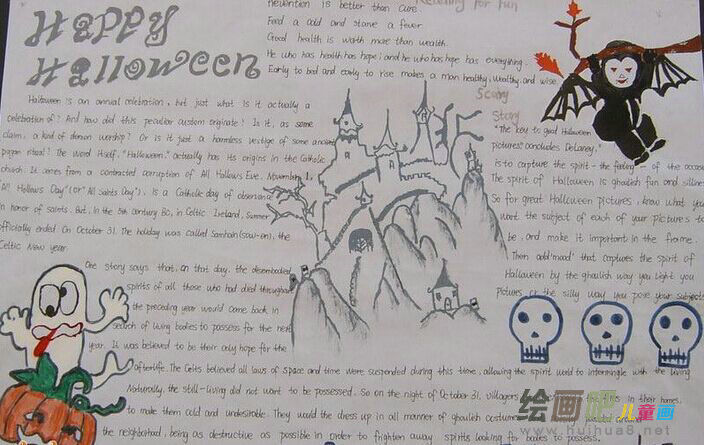 Happy
Halloween
Prevention is better than cure.
Reading for fun
Feed a cold and starve a fever.
Good health is worth more than wealth.
He who has health has hope; and he who has hope has everything.
Early to bed and early to rise makes a man healthy, wealthy and wise.
Scary
Story
Halloween is an annual celebration, but just what is it actually a
celebration of? And how did this peculiar custom originate? Is it, as some
claim, a kind of demon worship? Or is it just a harmless vestige of some ancient
pagan ritual? The word itself, "Halloween," actually has its origins in the Catholic
church. It comes from a contracted corruption of All Hallows Eve. November 1,
"All Hallows Day" (or "All Saints Day"), is a Catholic day of observance
in honor of saints. But, in the 5th century BC, in Celtic Ireland, summer
officially ended on October 31. The holiday was called Samhain (sow-en), the
Celtic New year.
"The key to good Halloween
pictures," concludes DeLaney,
is to capture the spirit - the feeling - of the occasion
The spirit of Halloween is ghoulish fun and silliness
So for great Halloween pictures, know what you
want the subject of each of your pictures to
be, and make it important in the frame.
Then add "mood" that captures the spirit of
Halloween by the ghoulish way you light you
pictures or the silly way you pose your subjects
One story says that, on that day, the disembodied
spirits of all those who had died throughout
the preceding year would come back in
search of living bodies to possess for the next
year. It was believed to be their only hope for the
afterlife. The Celts believed all laws of space and time were suspended during this time, allowing the spirit world to intermingle with the living
Naturally, the still-living did not want to be possessed. So on the night of October 31, villagers in their homes,
to make them cold and undesirable. They would the dress up in all manner of ghoulish costumes around
the neighborhood, being as destructive as possible in order to frighten away spirits looking for bodies to possess.
绘画吧 儿童画
www.huihua8.com